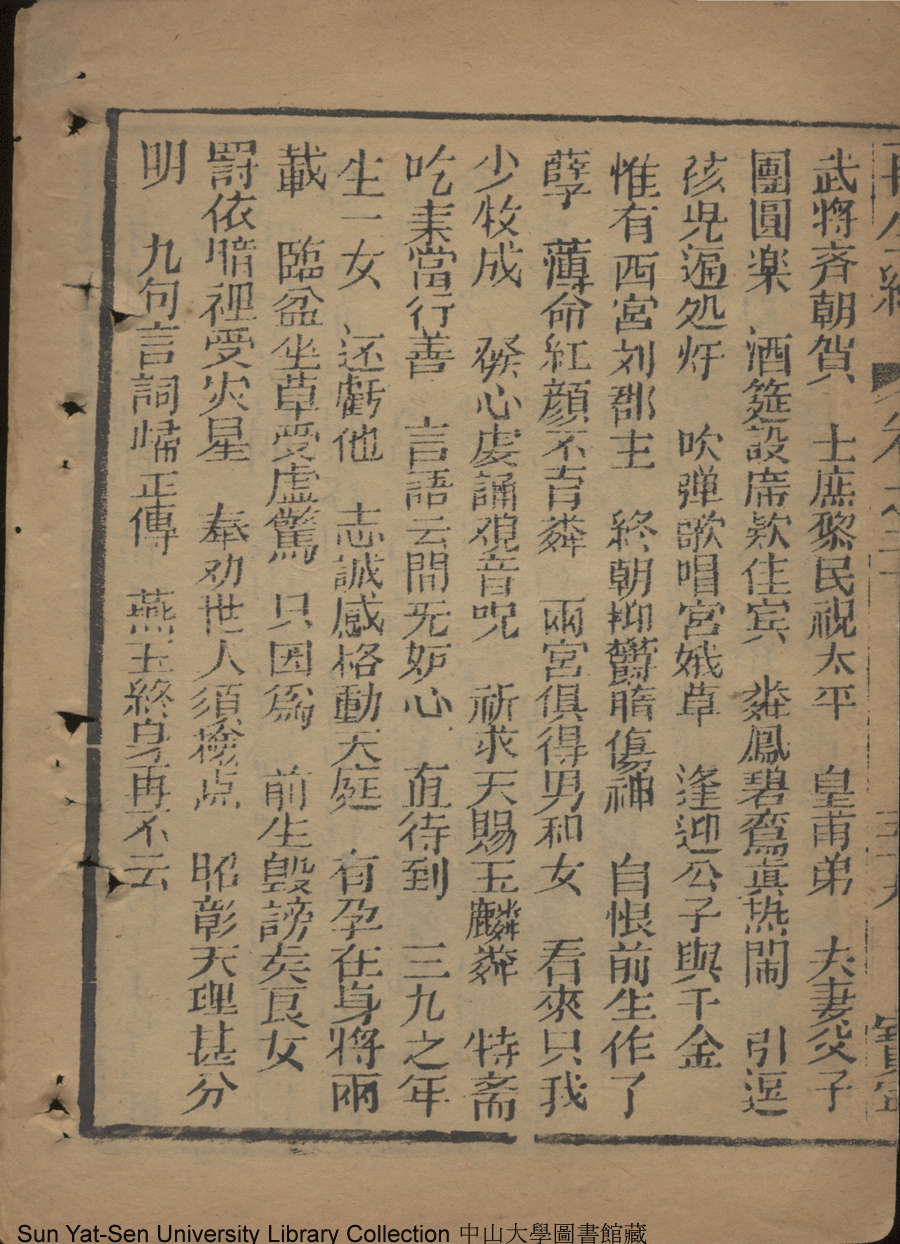 再生緣 卷之二十 五九 寶寧
武將斉朝贺 士庶黎民祝太平 皇甫弟 夫妻父子
團圓楽 酒筵設席欵佳宾 粦鳳碧鸞真热閙 引逗
孩児遍処炉 吹弹歌唱宫娥草 逢迎公子與千金
惟有西宫刘郡主 終朝抑欝腊傷神 自恨前生作了
孽 薄命紅顔不育粦 兩宮俱得男和女 看來只我
少牧成 發心虔誦观音呪 祈求天賜玉麟粦 特斋
吃素當行善 言語云間无妒心 直待到 三九之年
生一女 还虧他 志誠感格動天庭 有孕在身將兩
載 臨盆坐草受虚驚 只因爲 前生毀謗矣良女
罰依暗裡受火星 奉劝世人須檢点 昭彰天理甚分
明 九句言詞帰正傳 燕玉終身再不云
Sun Yat-Sen University Library Collection 中山大學圖書館藏